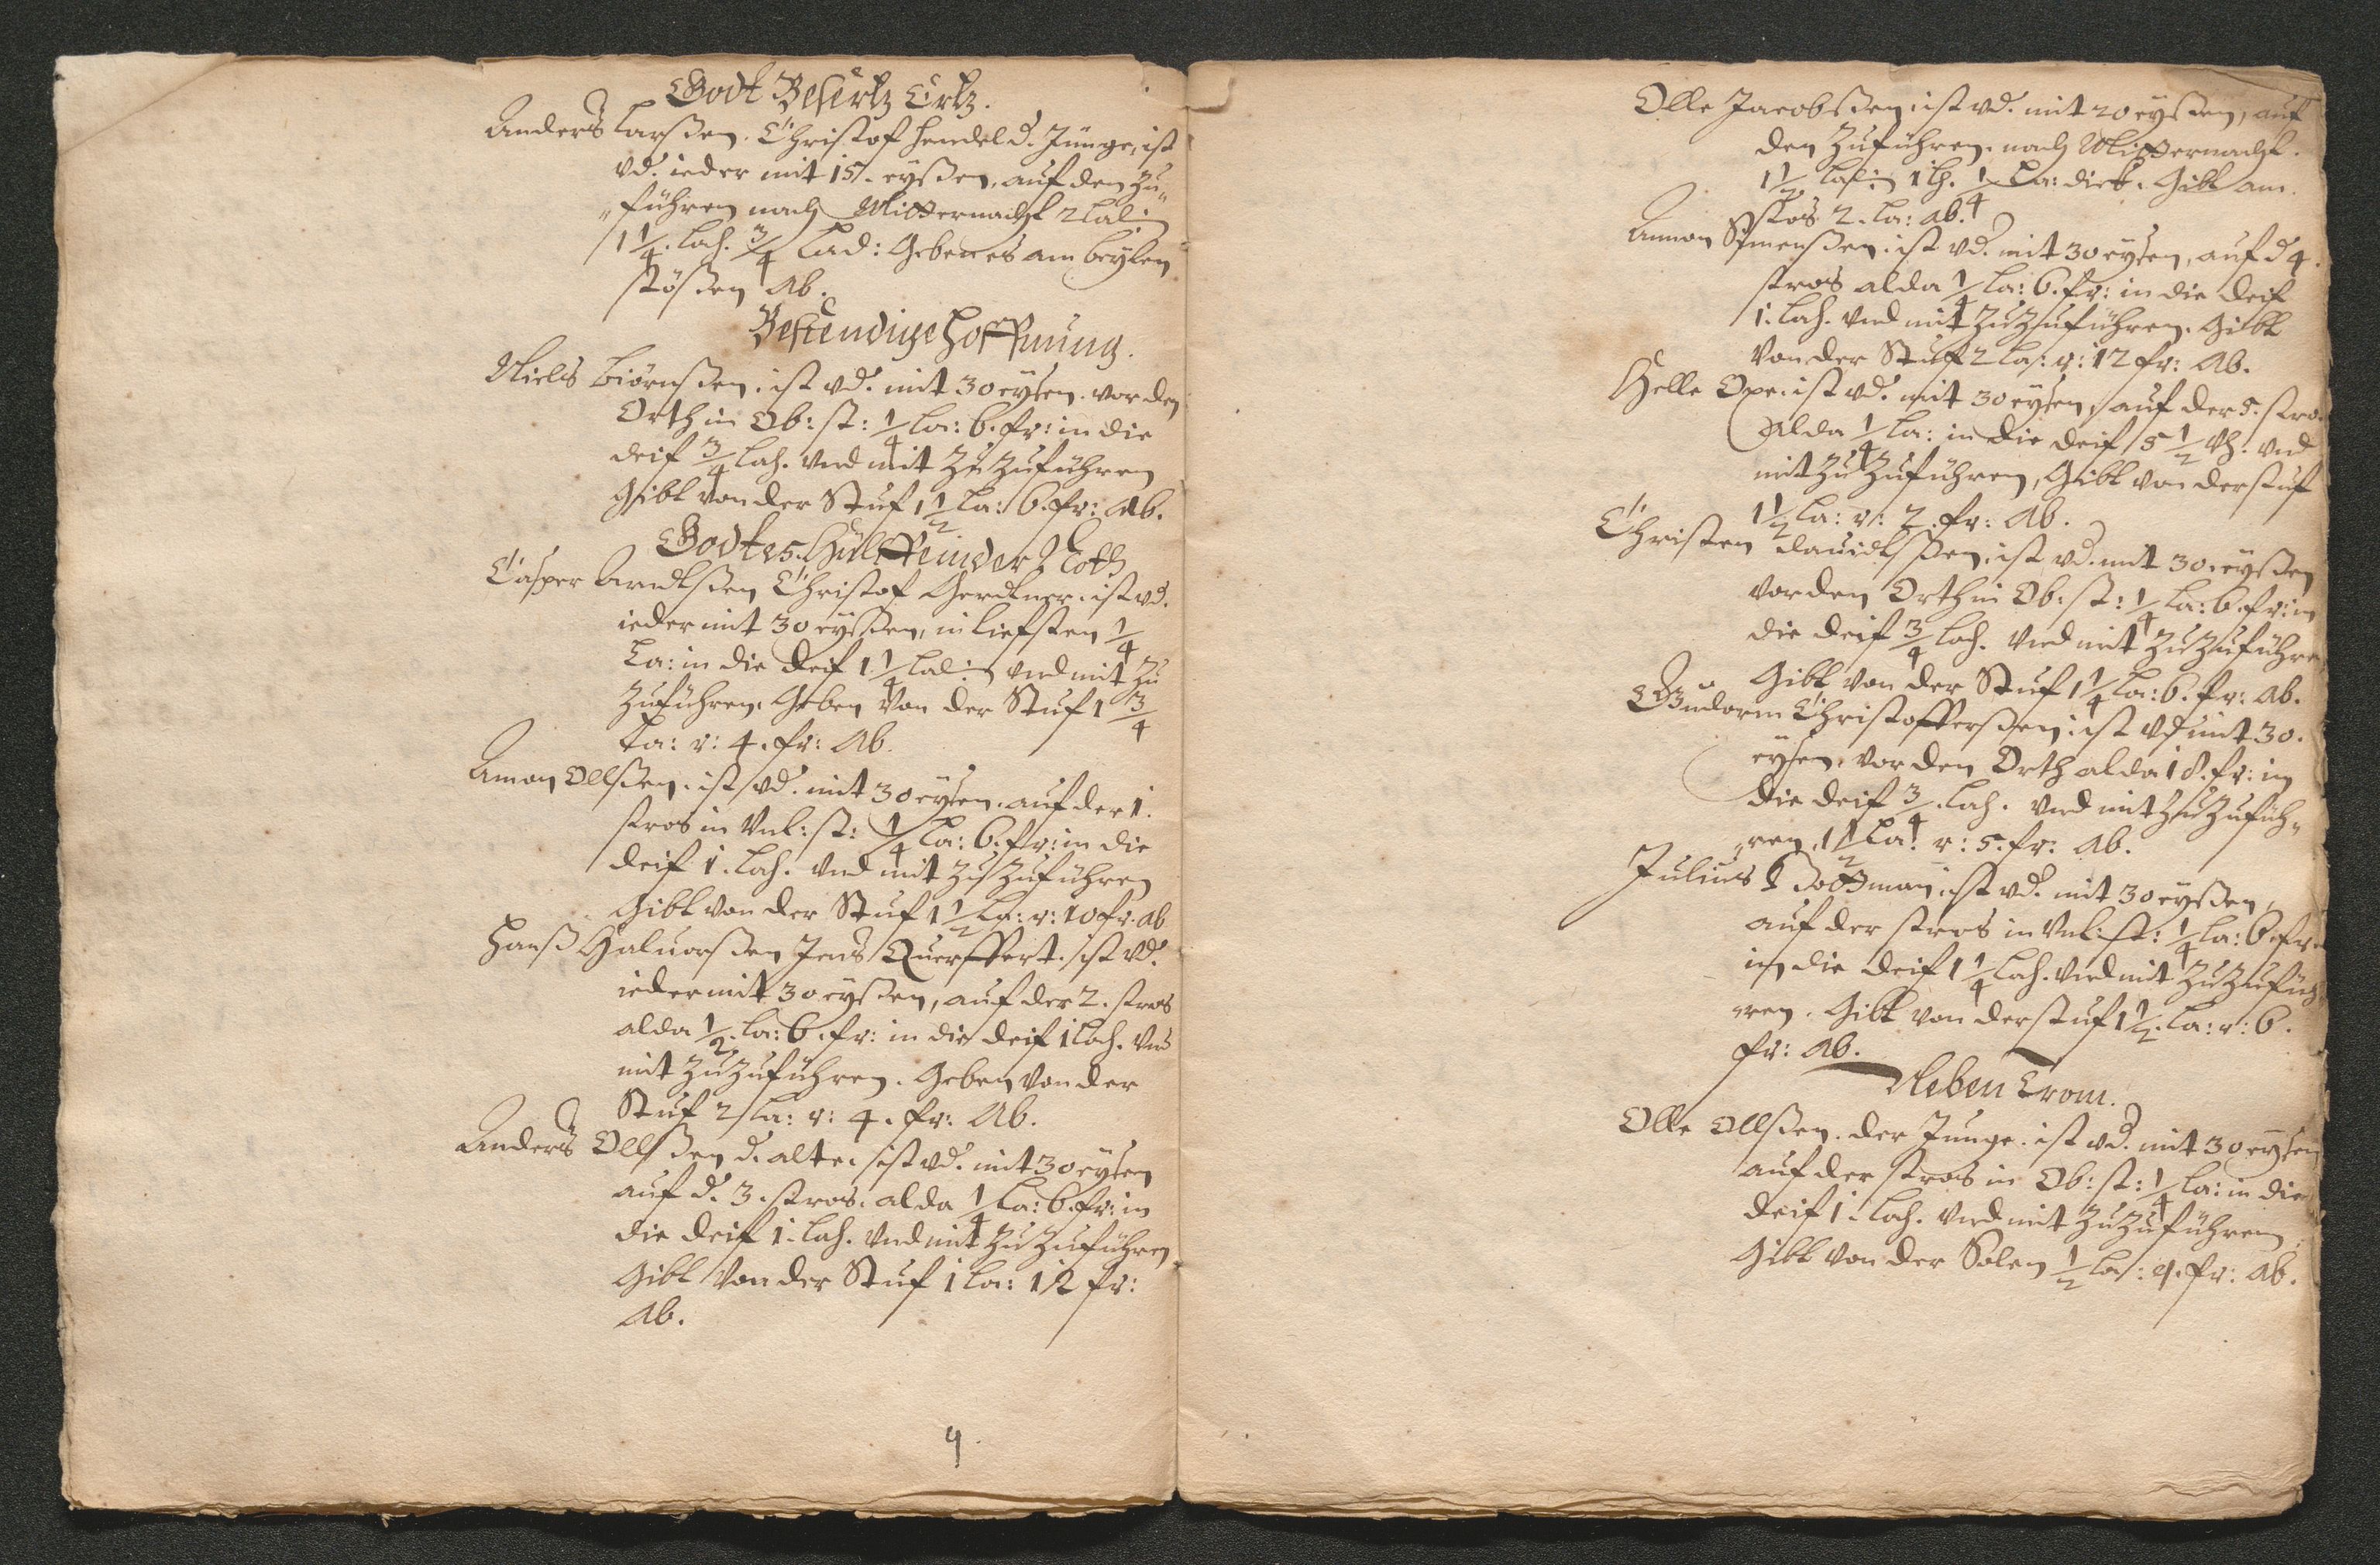 Godt Beschertz Ertz.
Anders Larßen. Christof Hendel d. Jünge, ist
vd. ieder mit 15. eyßen, auf den Zu„
„führen nach Mitternacht 2 Lal:
1 1/4. Lach. 3/4 Lad: Geben es am beyden
stößen Ab.
Bestendige Hoffnung.
Niels Biörnßen. ist vd. mit 30 eysen. vor den
Orth in Ob: st: 1/4 La: 6. fr: in die
deif 3/4 Lach. vnd mit Zu Zuführen
Gibt von der Stuf 1 1/2 La: 6. fr: Ab.
Godtes Hülffe in der Noth
Casper Arndtßen Christof Gerdtner. ist vd.
ieder mit 30 eyßen, in tiefsten 1/4
La: in die deif 1 1/4 Lal: vnd mit Zu
Zuführen. Geben von der Stuf 1 3/4
La: r: 4. fr: Ab.
Amon Ollßen. ist vd. mit 30 eysen. auf der 1.
stros in Vnt: st: 1/4 La: 6. fr: in die
deif 1. Lach. vnd mit Zu Zuführen
Gibt von der Stuf 1 1/2 La: r: 10 fr. ab
Hanß Haluorßen Jens Querffert. ist vd.
ieder mit 30 eyßen, auf der 2. stros
alda 1/2. La: 6. fr: in die deif 1 Lach. vnd
mit Zu Zuführen. Geben von der
Stuf 2 La: r: 4. fr: Ab.
Anders Ollßen d. alte. ist vd. mit 30 eysen
auf d. 3. stros. alda 1/4 La: 6. fr: in
die deif 1. Lach. vnd mit Zu Zuführen
Gibt von der Stuf 1 La: 12 fr:
Ab.
9
Olle Jacobßen. ist vd. mit 20 eyßen, auf
den Zuführen. nach Mitternacht.
1 1/2 1 1/4 La: dick. Gibt am
stos 2. La: Ab.
Amon Simenßen. ist vd. mit 30 eysen, auf d 4.
stros alda 1/4 La: 6. fr: in die deif
1. Lach. vnd mit Zu Zuführen. Gibt
Von der Stuf 2 La: r: 12 fr: Ab.
Helle Oxe. ist vd. mit 30 eysen, auf der 5. stro.
Alda 1/4 La: in die deif 5 1/2 vnd
mit Zu Zuführen, Gibt von der stuf
1 1/2 La: r: 2. fr: Ab.
Christen Dauidtßen. ist vd. mit 30. eyßen
vor den Orth in Ob: st: 1/4 La: 6. fr: in
die deif 3/4 Lach. vnd mit Zu Zuführen
Gibt von der Stuf 1 1/4 La: 6. fr: Ab.
Gudorm Christofferßen. ist vd mit 30.
eysen, vor den Orth alda 18. fr: in
die deif 3/4 Lach. vnd mit Zu Zufüh„
„ren, 1 1/2 La: r: 5. fr: Ab.
Julius ist vd. mit 30 eyßen,
auf der stros in Vnt: st: 1/4 La: 6. fr:
in die deif 1 1/4 Lach. vnd mit Zu Zufüh„
„ren. Gibt von der stuf 1 1/2. La: r: 6.
fr: Ab.
Neben Trom.
Olle Ollßen. der Junge. ist vd. mit 30 eysen
auf der stros in Ob: st: 1/4 La: in die
deif 1. Lach. vnd mit Zu Zuführen
Gibt von der Solen 1/2 La: 9. fr: Ab.